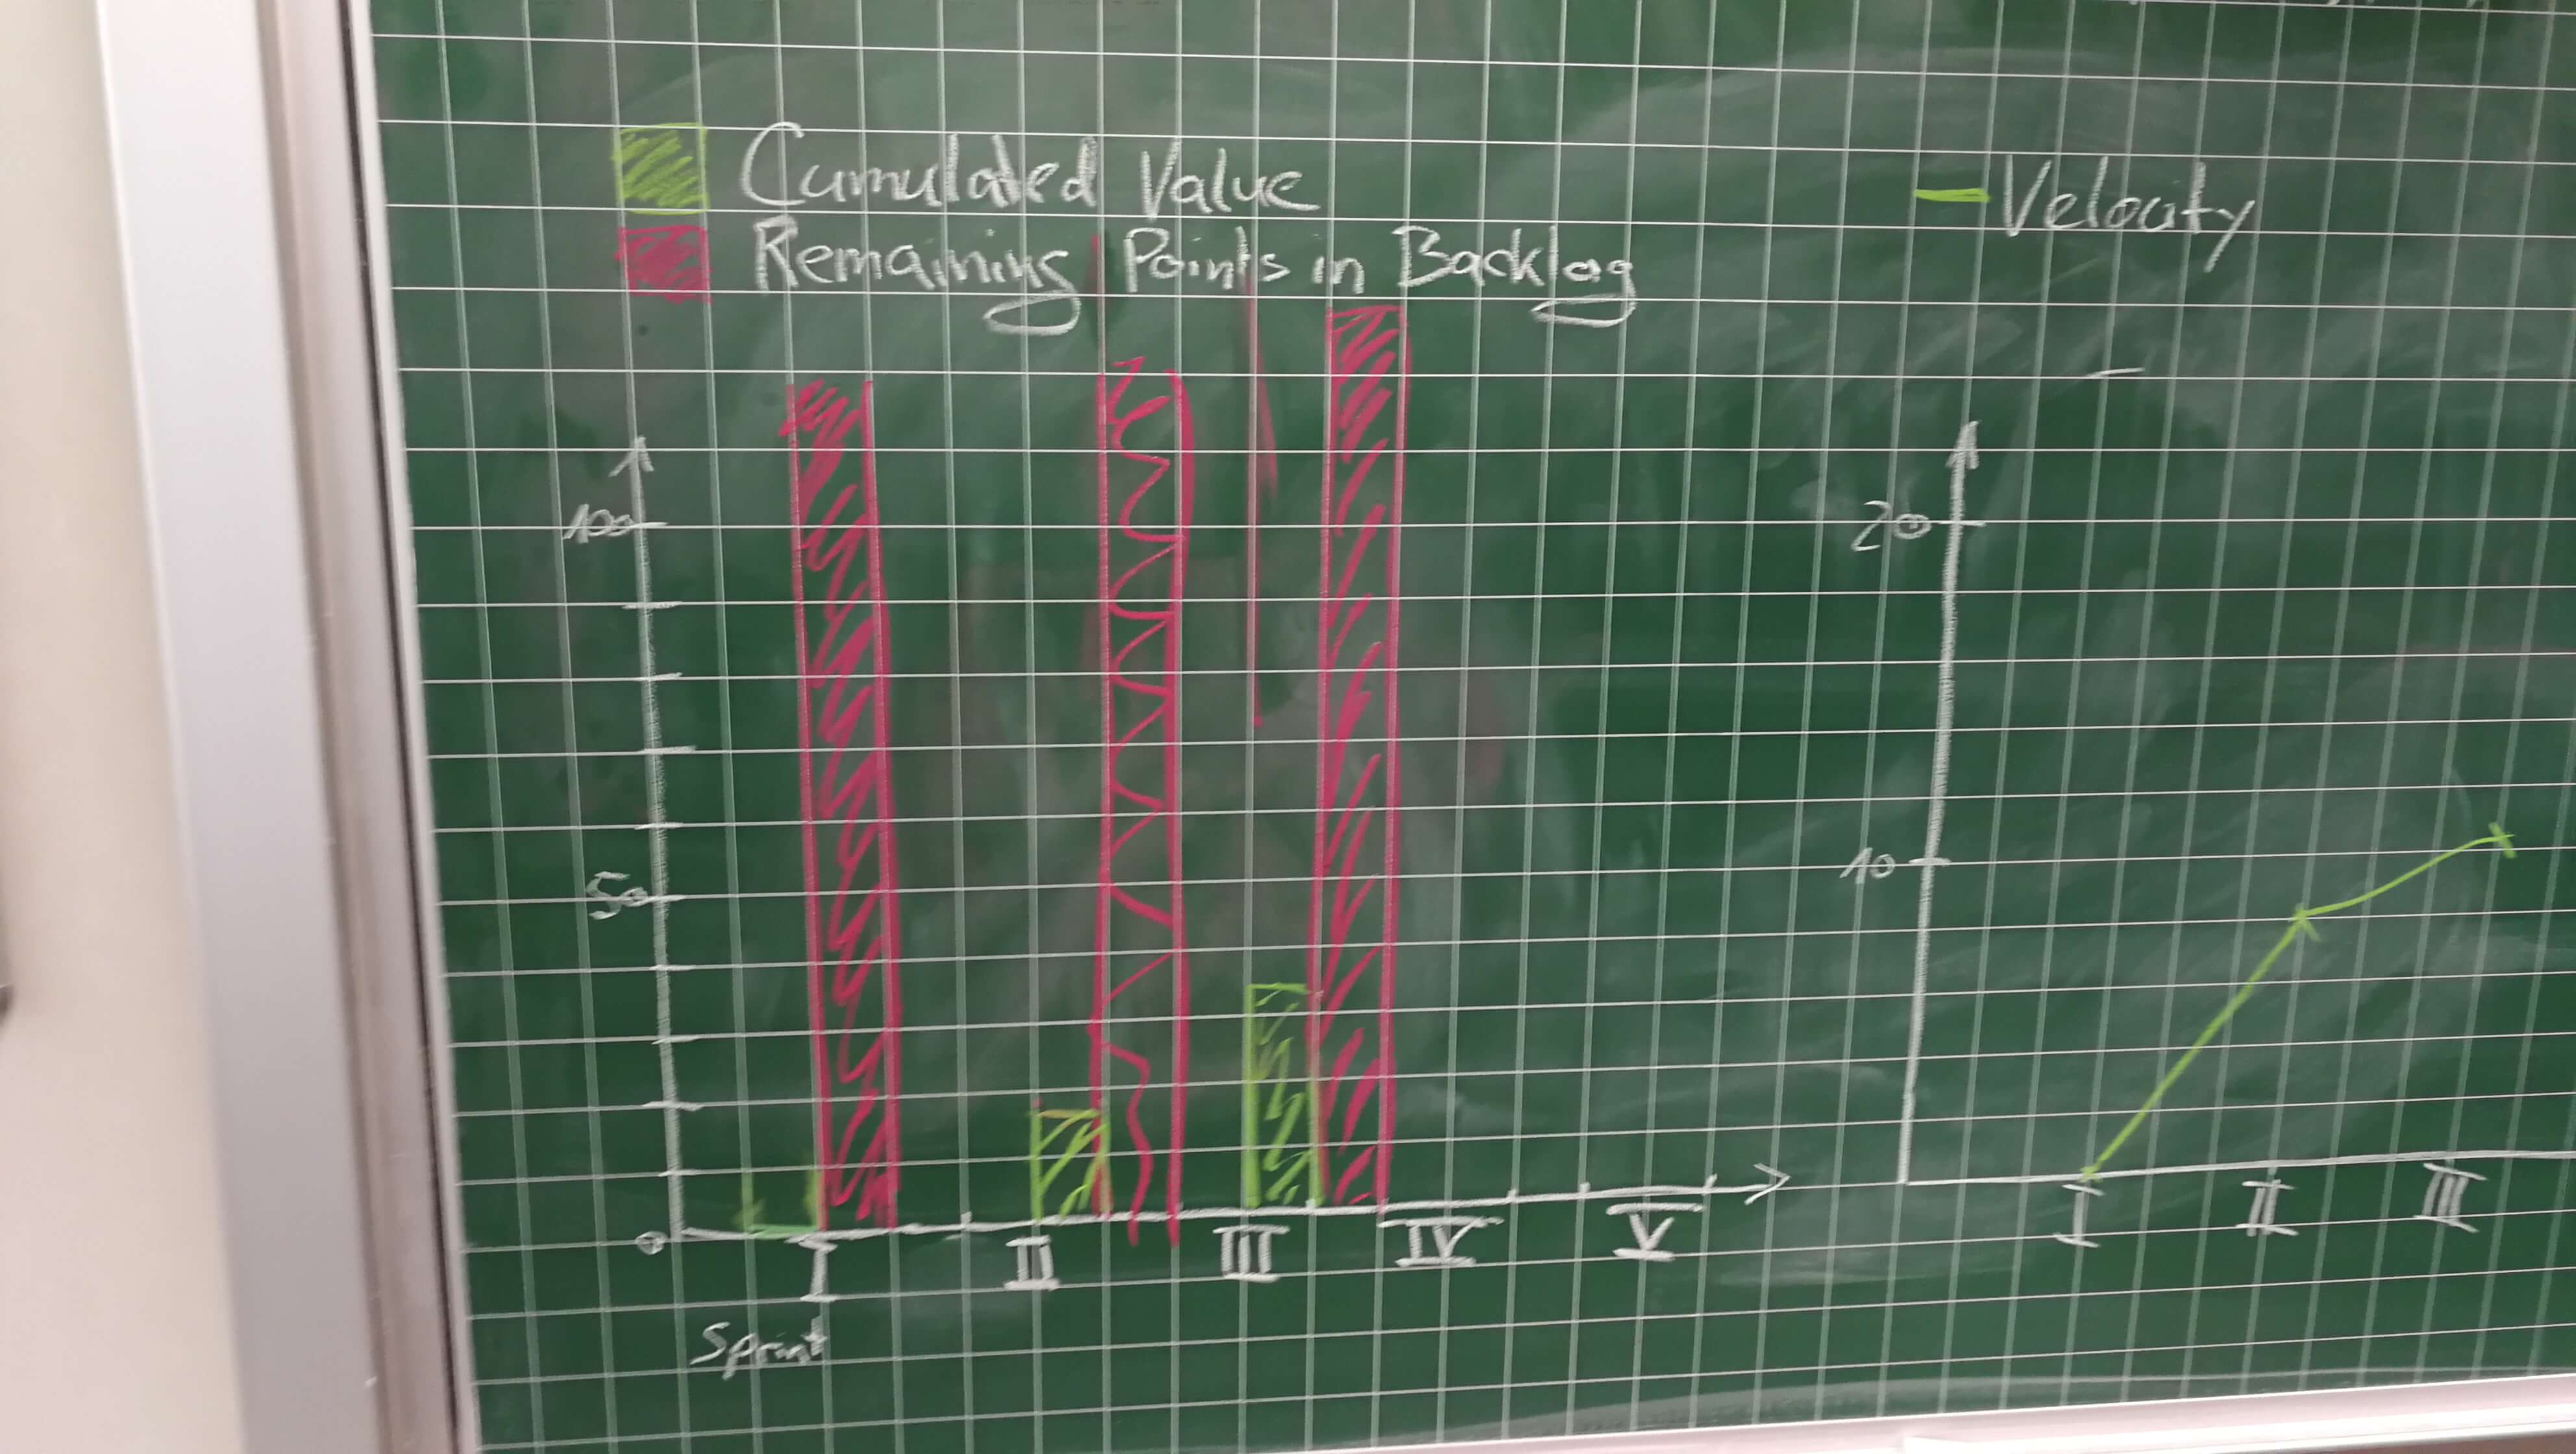 Cumulated Value
Remaining Points in Backlog
100
50
0
I II III IV V
Sprint
Velocity
20
10
I II III